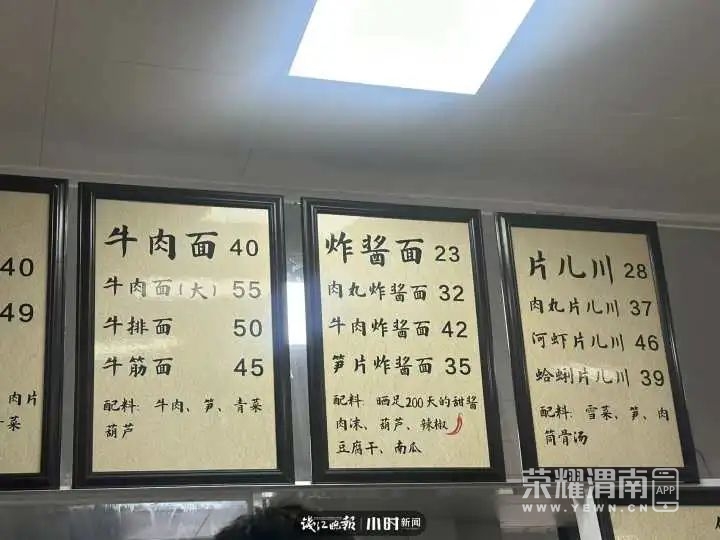 40
49
肉片
菜
牛肉面 40
牛肉面(大) 55
牛排面 50
牛筋面 45
配料: 牛肉、笋、青菜
葫芦
炸酱面 23
肉丸炸酱面 32
牛肉炸酱面 42
笋片炸酱面 35
配料: 晒足200天的甜酱
肉沫、葫芦、辣椒
豆腐干、南瓜
片儿川 28
肉丸片儿川 37
河虾片儿川 46
蛤蜊片儿川 39
配料: 雪菜、笋、肉
筒骨汤
钱江晚报 小时新闻
荣耀渭南 APP
WWW.YEWN.CN